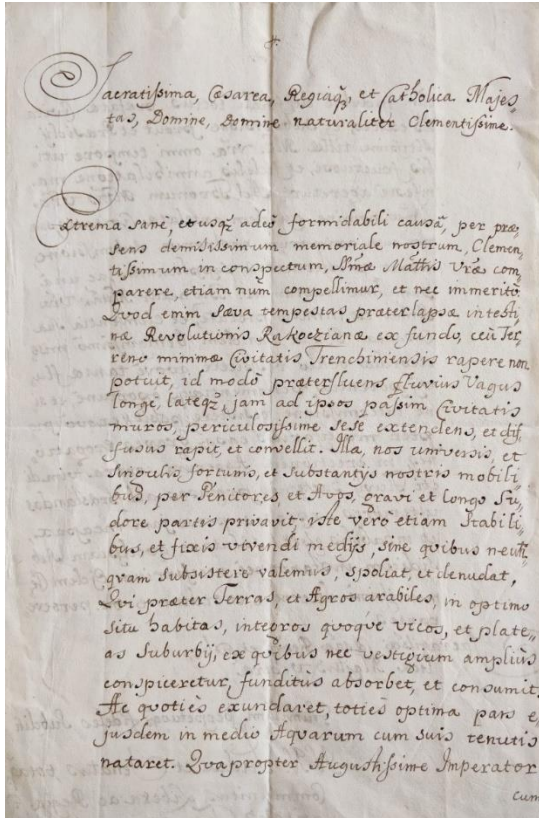 Sacratissima, Cæsarea, Regiaq3, et Catholica Majes,
tas, Domine, Domine naturaliter Clementissime.
Extrema sane, et usq3 adeo formidabili causa, per præ,
sens demississimum memoriale nostrum, Clemen,
tissimum in conspectum, Smæ Mattis Vræ com,
parere, etiam num compellimur, et nec immerito.
Qvod enim sæva tempestas præterlapsæ intesti,
næ Revolutionis Rakoczianæ ex fundo, ceu Ter,
reno minimæ Civitatis Trenchiniensis rapere non
potuit, id modo præterfluens Fluvius Vagus
longe, lateq3, jam ad ipsos passim Civitatis
muros, periculosissime sese extendens, et dif,
fusus rapit, et convellit. Illa, nos universis, et
singulis fortunis, et substantijs nostris mobili,
bus, per Genitores et Avos, gravi et longo Su,
dore partis privavit, iste vero etiam Stabili,
bus, et fixis vivendi medijs, sine quibus neuti,
qvam subsistere valemus, spoliat, et denudat,
Qvi præter Terras, et Agros arabiles, in optimo
situ habitas, integros quoque vicos, et plate,
as Suburbij, ex quibus nec vestigium amplius
conspiceretur, funditus absorbet, et consumit,
Ac quoties exundaret, toties optima pars e,
jusdem in medio Aquarum cum suis tenutis
nataret. Qvapropter Augustissime Imperator
cum